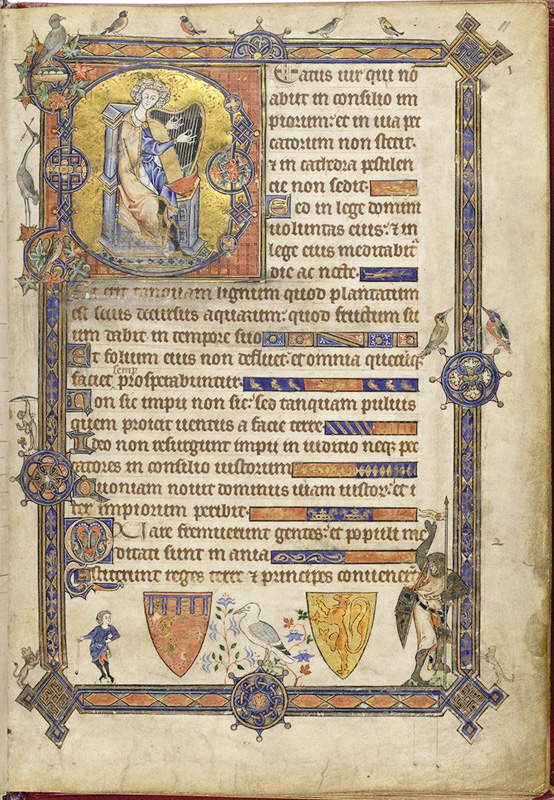 Eatus uir qui nō
abiit in consilio im
piorum: et in uia pec
catorum non stetit:
et in cathedra pestilen
cie non sedit.
Sed in lege domini
uoluntas eius: et in
lege eius meditabitᷣ
die ac nocte.
erit tanquam lignum quod plantatum
est secus decursus aquarum: quod fructum su
um dabit in tempore suo
Et folium eius non defluet: et omnia quecūqꝫ
faciet semp prosperabuntur.
Non sic impii non sic: sed tanquam puluis
quem proicit uentus a facie terre
Ideo non resurgunt impii in iudicio neqꝫ pec
catores in consilio iustorum
Quoniam nouit dominus uiam iustorꝝ: et i
ter impiorum peribit.
Quare fremuerunt gentes: et populi me
ditati sunt inania
Astiterunt reges terre et principes conuenerūt